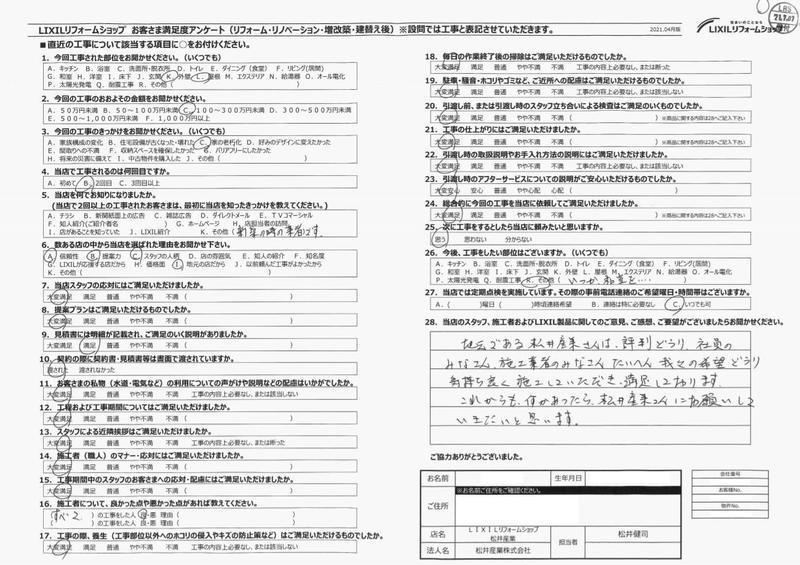 LIXILリフォームショップ お客さま満足度アンケート（リフォーム・リノベーション・増改築・建替え後）※設問では工事と表記させていただきます。
2021.04月版
住まいのことなら
LIXILリフォームショップ
■直近の工事について該当する項目に○をお付けください。
1．今回工事された部位をお聞かせください。（いくつでも）
A．キッチン B．浴室 C．洗面所・脱衣所 D．トイレ E．ダイニング（食堂） F．リビング(居間)
G．和室 H．洋室 I．床下 J．玄関 K．外壁 L．屋根 M．エクステリア N．給湯器 O．オール電化
P．太陽光発電 Q．耐震工事 R．その他（ ）
2．今回の工事のおおよその金額をお聞かせください。
A．５０万円未満 B．５０～１００万円未満 C．１００～３００万円未満 D．３００～５００万円未満
E．５００～１,０００万円未満 F．１,０００万円以上
3．今回の工事のきっかけをお聞かせください。（いくつでも）
A．家族構成の変化 B．住宅設備が古くなった・壊れた C．家の老朽化 D．好みのデザインに変えたかった
E．間取りへの不満 F．収納スペースを確保したかった G．バリアフリーにしたかった
H．将来の災害に備えて I．中古物件を購入した J．その他（ ）
4．当店で工事されるのは何回目ですか。
A．初めて B．2回目 C．3回目以上
5．当店を何でお知りになりましたか。
（当店で２回以上の工事されたお客さまは、最初に当店を知ったきっかけを教えてください。）
A．チラシ B．新聞紙面上の広告 C．雑誌広告 D．ダイレクトメール E．ＴＶコマーシャル
F．知人紹介(ご紹介者名 ) G．ホームページ H．店担当者の訪問
I．店があることを知っていた J．LIXIL紹介 K．その他（
6．数ある店の中から当店を選ばれた理由をお聞かせ下さい。
A．信頼性 B．提案力 C．スタッフの人柄 D．店の雰囲気 E．知人の紹介 F．知名度
G．LIXILが応援する店だから H．価格面 I．地元の店だから J．以前頼んだ工事がよかったから
K．その他（ ）
7．当店スタッフの応対にはご満足いただけましたか。
大変満足 満足 普通 やや不満 不満（ ）
8．提案プランはご満足いただけるものでしたか。
大変満足 満足 普通 やや不満 不満（ ）
9．見積書には明細が記載され、ご満足のいく説明がありましたか。
大変満足 満足 普通 やや不満 不満（ ）
10．契約の際に契約書・見積書等は書面で渡されていますか。
渡された 渡されなかった
11．お客さまの私物（水道・電気など）の利用についての声がけや説明などの配慮はいかがでしたか。
大変満足 満足 普通 やや不満 不満 工事の内容上必要なし、または該当しない
12．工程および工事期間についてはご満足いただけましたか。
大変満足 満足 普通 やや不満 不満（ ）
13．スタッフによる近隣挨拶はご満足いただけましたか。
大変満足 満足 普通 やや不満 不満 工事の内容上必要なし、または断った
14．施工者（職人）のマナー・応対にはご満足いただけましたか。
大変満足 満足 普通 やや不満 不満（ ）
15．工事期間中のスタッフのお客さまへの応対・配慮にはご満足いただけましたか。
大変満足 満足 普通 やや不満 不満（ ）
16．施工者について、良かった点や悪かった点があれば教えてください。
（すべて ）の工事をした人 良・悪 理由（ ）
（ ）の工事をした人 良・悪 理由（ ）
17．工事の際、養生（工事部位以外へのホコリの侵入やキズの防止策など）はご満足いただけるものでしたか。
大変満足 満足 普通 やや不満 不満 工事の内容上必要なし、または該当しない
18．毎日の作業終了後の掃除はご満足いただけるものでしたか。
大変満足 満足 普通 やや不満 不満 工事の内容上必要なし、または断った
19．駐車・騒音・ホコリやゴミなど、ご近所への配慮はご満足いただけるものでしたか。
大変満足 満足 普通 やや不満 不満 工事の内容上必要なし、または該当しない
20．引渡し前、または引渡し時のスタッフ立ち合いによる検査はご満足のいくものでしたか。
大変満足 満足 普通 やや不満 不満（ ）※商品に関する内容は28へご記入下さい
21．工事の仕上がりにはご満足いただけましたか。
大変満足 満足 普通 やや不満 不満（ ）※商品に関する内容は28へご記入下さい
22．引渡し時の取扱説明やお手入れ方法の説明にはご満足いただけましたか。
大変満足 満足 普通 やや不満 不満 工事の内容上必要なし、または該当しない
23．引渡し時のアフターサービスについての説明がご安心いただけるものでしたか。
大変安心 安心 普通 やや心配 心配（ ）
24．総合的に今回の工事を当店に依頼してご満足いただけましたか。
大変満足 満足 普通 やや不満 不満（ ）※商品に関する内容は28へご記入下さい
25．次に工事をするとしたら当店に頼みたいと思いますか。
思う 思わない 分からない
26．今後、工事をしたい部位はございますか。（いくつでも）
A．キッチン B．浴室 C．洗面所・脱衣所 D．トイレ E．ダイニング（食堂） F．リビング(居間)
G．和室 H．洋室 I．床下 J．玄関 K．外壁 L．屋根 M．エクステリア N．給湯器 O．オール電化
P．太陽光発電 Q．耐震工事 R．その他（
27．当店では定期点検を実施しています。その際の事前電話連絡のご希望曜日・時間帯はございますか。
A．（ ）曜日（ ）時頃連絡希望 B．連絡は特に必要なし C．いつでも可
28．当店のスタッフ、施工者およびLIXIL製品に関してのご意見、ご感想、ご要望がございましたらお聞かせください。
地元である松井産業さんは、評判どうり、社員の
みなさん、施工業者のみなさん たいへん 我々の希望どうり
気持ち良く施工していただき、満足しております。
これからも、何かあったら、松井産業さんにお願いして
いきたいと思います。
ご協力ありがとうございました。
お名前
生年月日
※お名前ご住所をご確認ください。
ご住所
店名
ＬＩＸＩＬリフォームショップ
松井産業
担当者
松井健司
法人名
松井産業株式会社
会社番号
お客様No.
物件No.